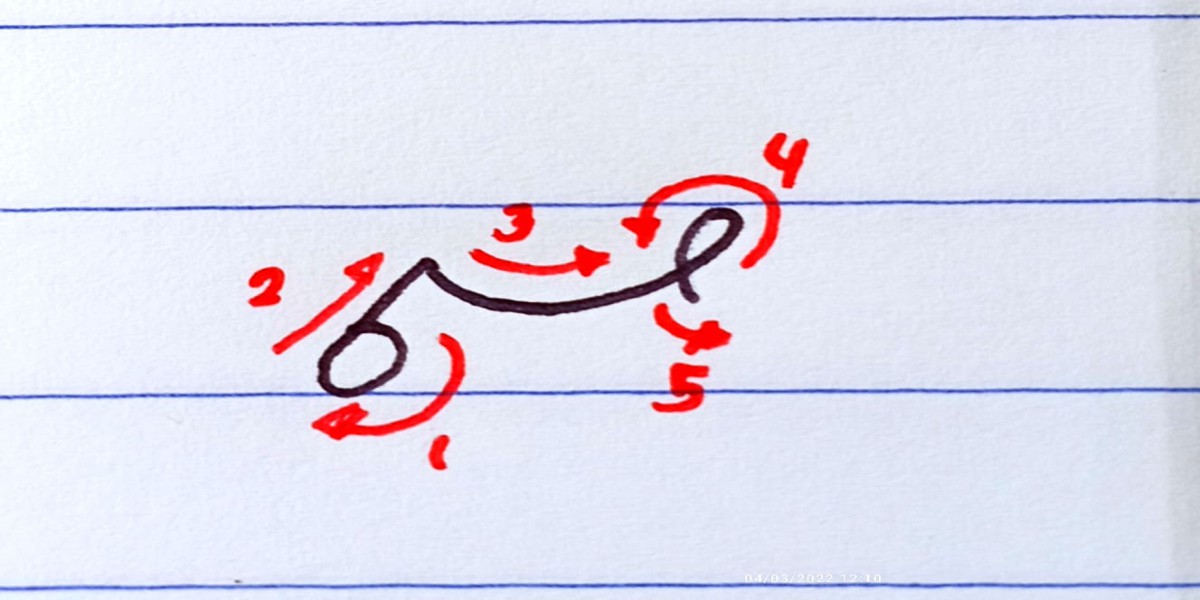 4
3
2
5
1
04/03/2022 12:10